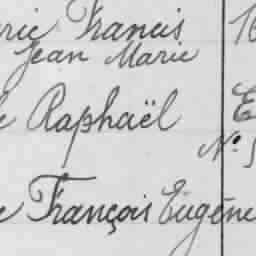 Francis
Jean Marie
Raphaël
N°
François Eugène